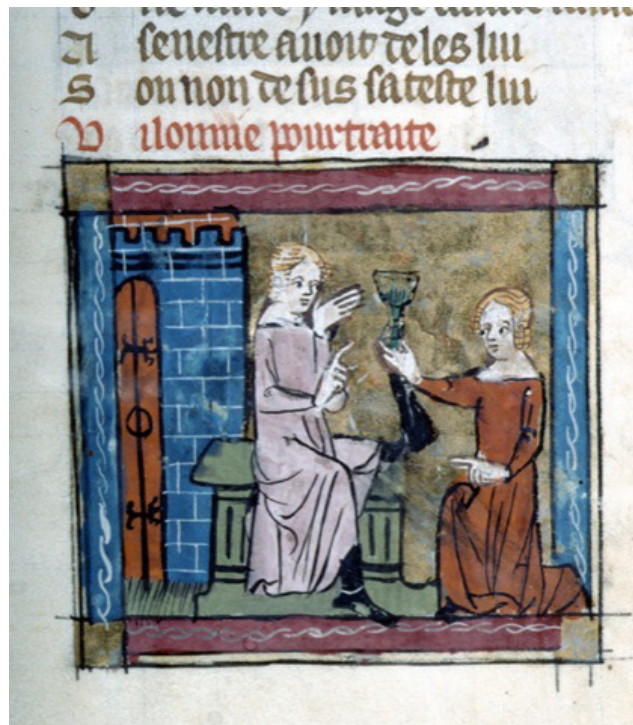 A senestre avoit deles lui
S on non desus sa teste lui
V ilonnie pourtraite